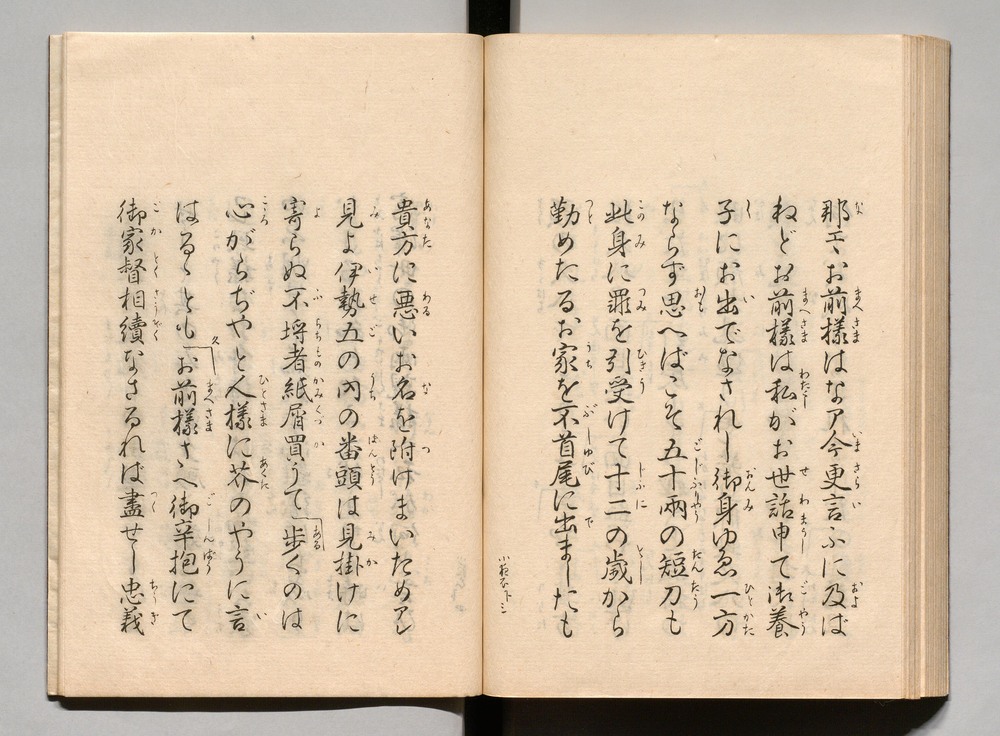 那エヽお前樣はなア今更言ふに及ば
ねどお前樣は私がお世話申て御養
子にお出でなされし御身ゆゑ一方
ならず思へばこそ五十兩の短刀も
此身に罪を引受けて十二の歳から
勤めたるお家を不首尾に出ましたも
貴方に悪いお名を附けまいためアレ
見よ伊勢五の内の番頭は見掛けに
寄らぬ不埒者紙屑買うて歩くのは
心がらぢやと人樣に芥のやうに言
はるゝとも お前樣さへ御辛抱にて
御家督相續なさるれば盡せし忠義